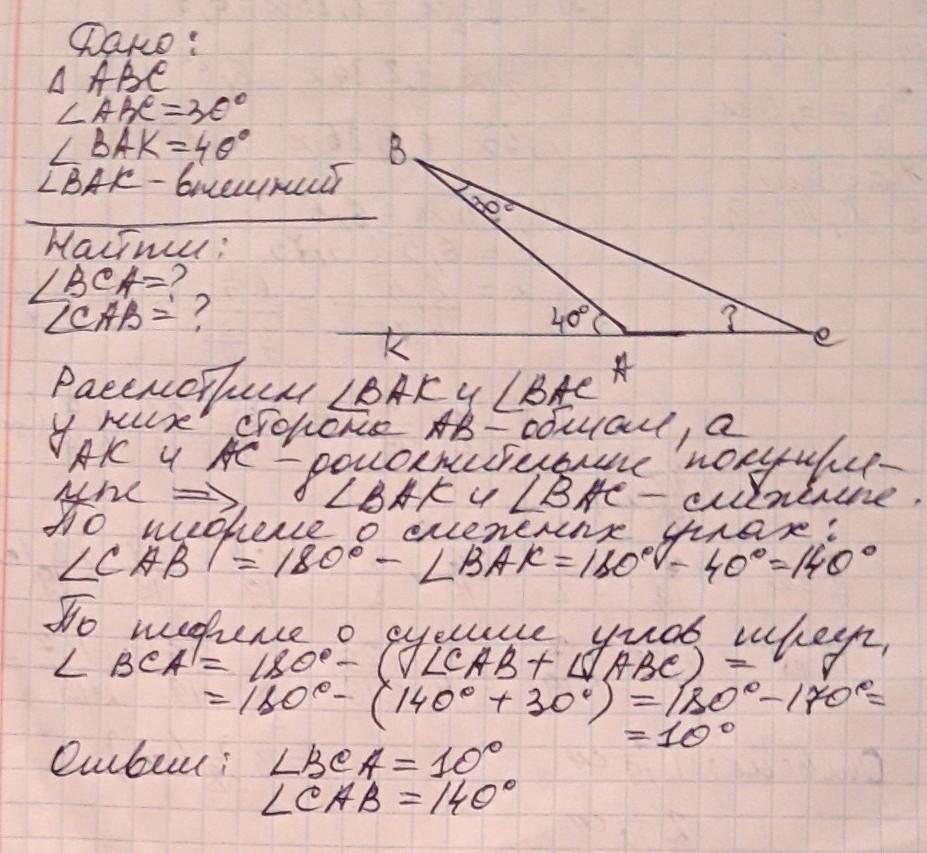 Дано:
Δ ABC
∠ABC=30°
∠BAK=40°
∠BAK-внешний
Найти:
∠BCA=?
∠CAB=?
B
30°
40°
?
K
A
C
Рассмотрим ∠BAK и ∠BAC
у них сторона AB-общая, а
AK и AC-дополнительные полупря-
мые => ∠BAK и ∠BAC-смежные.
По теореме о смежных углах:
∠CAB = 180° - ∠BAK=180° - 40°=140°
По теореме о сумме углов треуг.
∠BCA= 180°-(∠CAB+∠ABC)=
=180°-(140°+30°)=180°-170°=
=10°
Ответ: ∠BCA=10°
∠CAB=140°